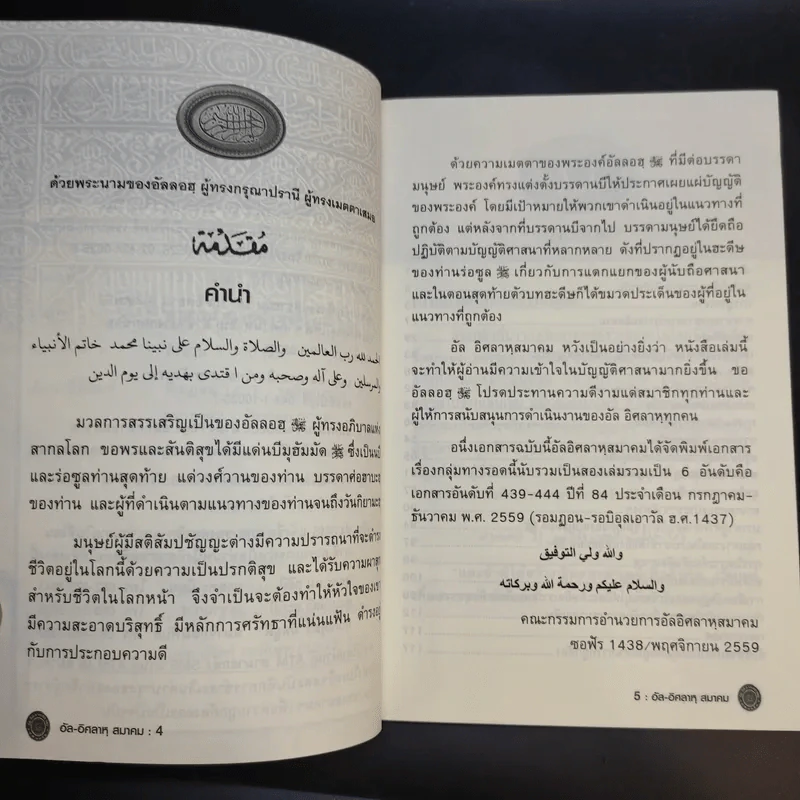 ด้วยพระนามของอัลลอฮฺ ผู้ทรงกรุณาปรานี ผู้ทรงเมตตาเสมอ
مقدمة
คำนำ
الحمد لله رب العالمين والصلاة والسلام على نبينا محمد خاتم الأنبياء
والمرسلين وعلى آله وصحبه ومن اقتدى بهديه إلى يوم الدين
มวลการสรรเสริญเป็นของอัลลอฮฺ ﷻ ผู้ทรงอภิบาลแห่ง
สากลโลก ขอพรและสันติสุขได้มีแด่นบีมุฮัมมัด ﷺ ซึ่งเป็นนบี
และร่อซูลท่านสุดท้าย แด่วงศ์วานของท่าน บรรดาศ่อฮาบะฮฺ
ของท่าน และผู้ที่ดำเนินตามแนวทางของท่านจนถึงวันกิยามะฮฺ
มนุษย์ผู้มีสติสัมปชัญญะต่างมีความปรารถนาที่จะดำรง
ชีวิตอยู่ในโลกนี้ด้วยความเป็นปรกติสุข และได้รับความผาสุก
สำหรับชีวิตในโลกหน้า จึงจำเป็นจะต้องทำให้หัวใจของเขา
มีความสะอาดบริสุทธิ์ มีหลักการศรัทธาที่แน่นแฟ้น ดำรงอยู่
กับการประกอบความดี
อัล-อิศลาหฺ สมาคม : 4
ด้วยความเมตตาของพระองค์อัลลอฮฺ ﷻ ที่มีต่อบรรดา
มนุษย์ พระองค์ทรงแต่งตั้งบรรดานบีให้ประกาศเผยแผ่บัญญัติ
ของพระองค์ โดยมีเป้าหมายให้พวกเขาดำเนินอยู่ในแนวทางที่
ถูกต้อง แต่หลังจากที่บรรดานบีจากไป บรรดามนุษย์ได้ยึดถือ
ปฏิบัติตามบัญญัติศาสนาที่หลากหลาย ดังที่ปรากฏอยู่ในฮะดีษ
ของท่านร่อซูล ﷺ เกี่ยวกับการแตกแยกของผู้นับถือศาสนา
และในตอนสุดท้ายตัวบทฮะดีษก็ได้ขมวดประเด็นของผู้ที่อยู่ใน
แนวทางที่ถูกต้อง
อัล อิศลาหฺสมาคม หวังเป็นอย่างยิ่งว่า หนังสือเล่มนี้
จะทำให้ผู้อ่านมีความเข้าใจในบัญญัติศาสนามากยิ่งขึ้น ขอ
อัลลอฮฺ ﷻ โปรดประทานความดีงามแด่สมาชิกทุกท่านและ
ผู้ให้การสนับสนุนการดำเนินงานของอัล อิศลาหฺทุกคน
อนึ่งเอกสารฉบับนี้อัลอิศลาหฺสมาคมได้จัดพิมพ์เอกสาร
เรื่องกลุ่มทางรอดนี้นับรวมเป็นสองเล่มรวมเป็น 6 อันดับคือ
เอกสารอันดับที่ 439-444 ปีที่ 84 ประจำเดือน กรกฎาคม-
ธันวาคม พ.ศ. 2559 (รอมฎอน-รอบิอุลเอาวัล ฮ.ศ.1437)
والله ولي التوفيق
والسلام عليكم ورحمة الله وبركاته
คณะกรรมการอำนวยการอัลอิศลาหฺสมาคม
ซอฟัร 1438/พฤศจิกายน 2559
5 : อัล-อิศลาหฺ สมาคม